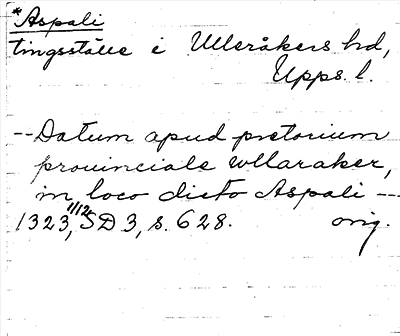 *Aspali
tingsställe i Ulleråkers hd,
Upps. l.
-- Datum apud pretorium
prouinciale wllaraker,
in loco dicto Aspali --
1323, 11/12 SD 3, s. 628. orig.